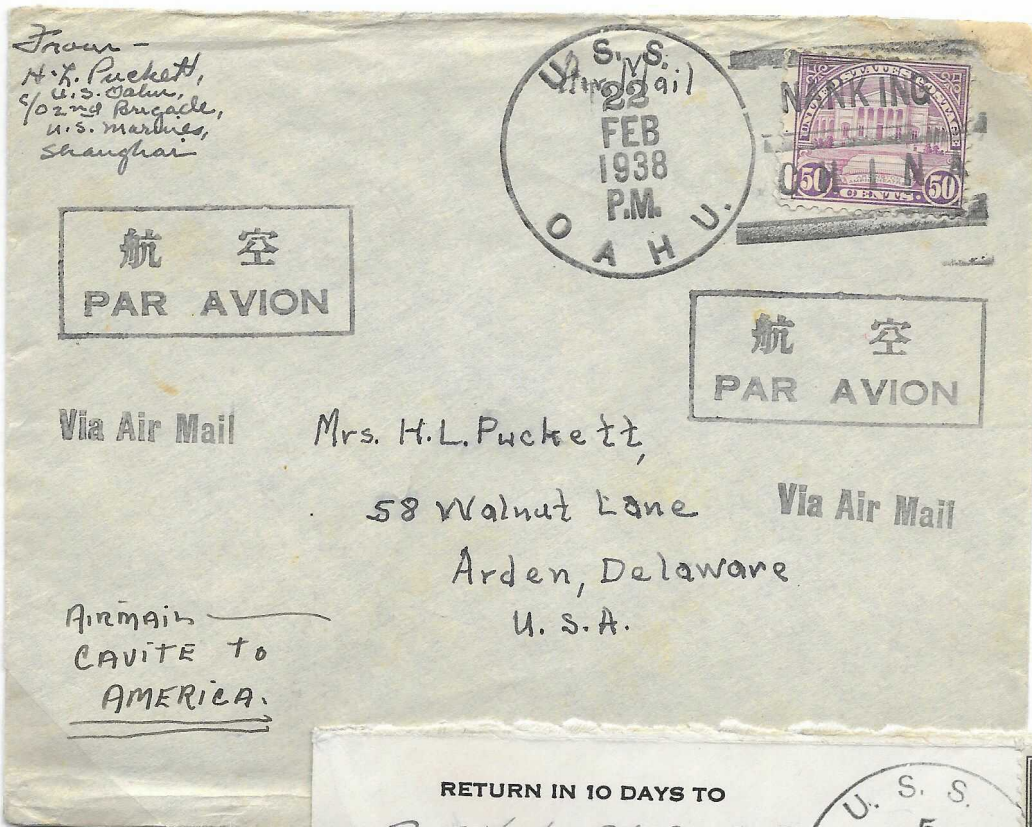 From -
H. L. Puckett,
U.S. Oahu,
c/o 2nd Brigade,
U.S. Marines,
Shanghai
U. S. S.
Air Mail
22
FEB
1938
P.M.
OAHU.
NANKING
CHINA
50 50
航 空
PAR AVION
航 空
PAR AVION
Via Air Mail
Mrs. H.L. Puckett,
58 Walnut Lane
Via Air Mail
Arden, Delaware
U.S.A.
AIRMAIL
CAVITE TO
AMERICA.
RETURN IN 10 DAYS TO
U. S. S.
5